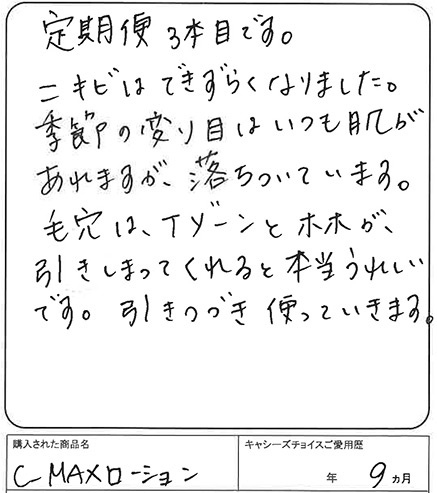 定期便 3本目です。
ニキビはできずらくなりました。
季節の変り目はいつも肌が
あれますが、落ちついています。
毛穴は、Tゾーンとホホが、
引きしまってくれると本当うれしい
です。引きつづき使っていきます。
購入された商品名
キャシーズチョイスご愛用歴
C-MAXローション
年 9 ヵ月